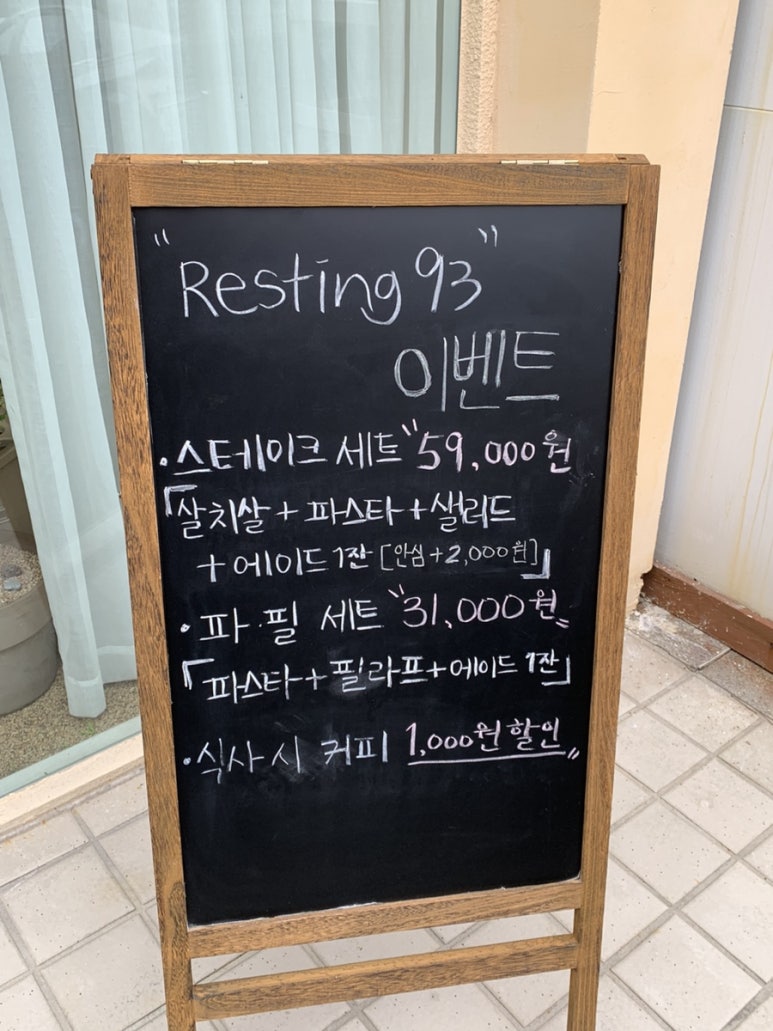 "Resting 93"
이벤트
· 스테이크 세트 "59,000원
「살치살 + 파스타 + 샐러드
+ 에이드 1잔 [안심 + 2,000원]」
· 파·필 세트 "31,000원"
「파스타 + 필라프 + 에이드 1잔」
· 식사시 커피 1,000원 할인"